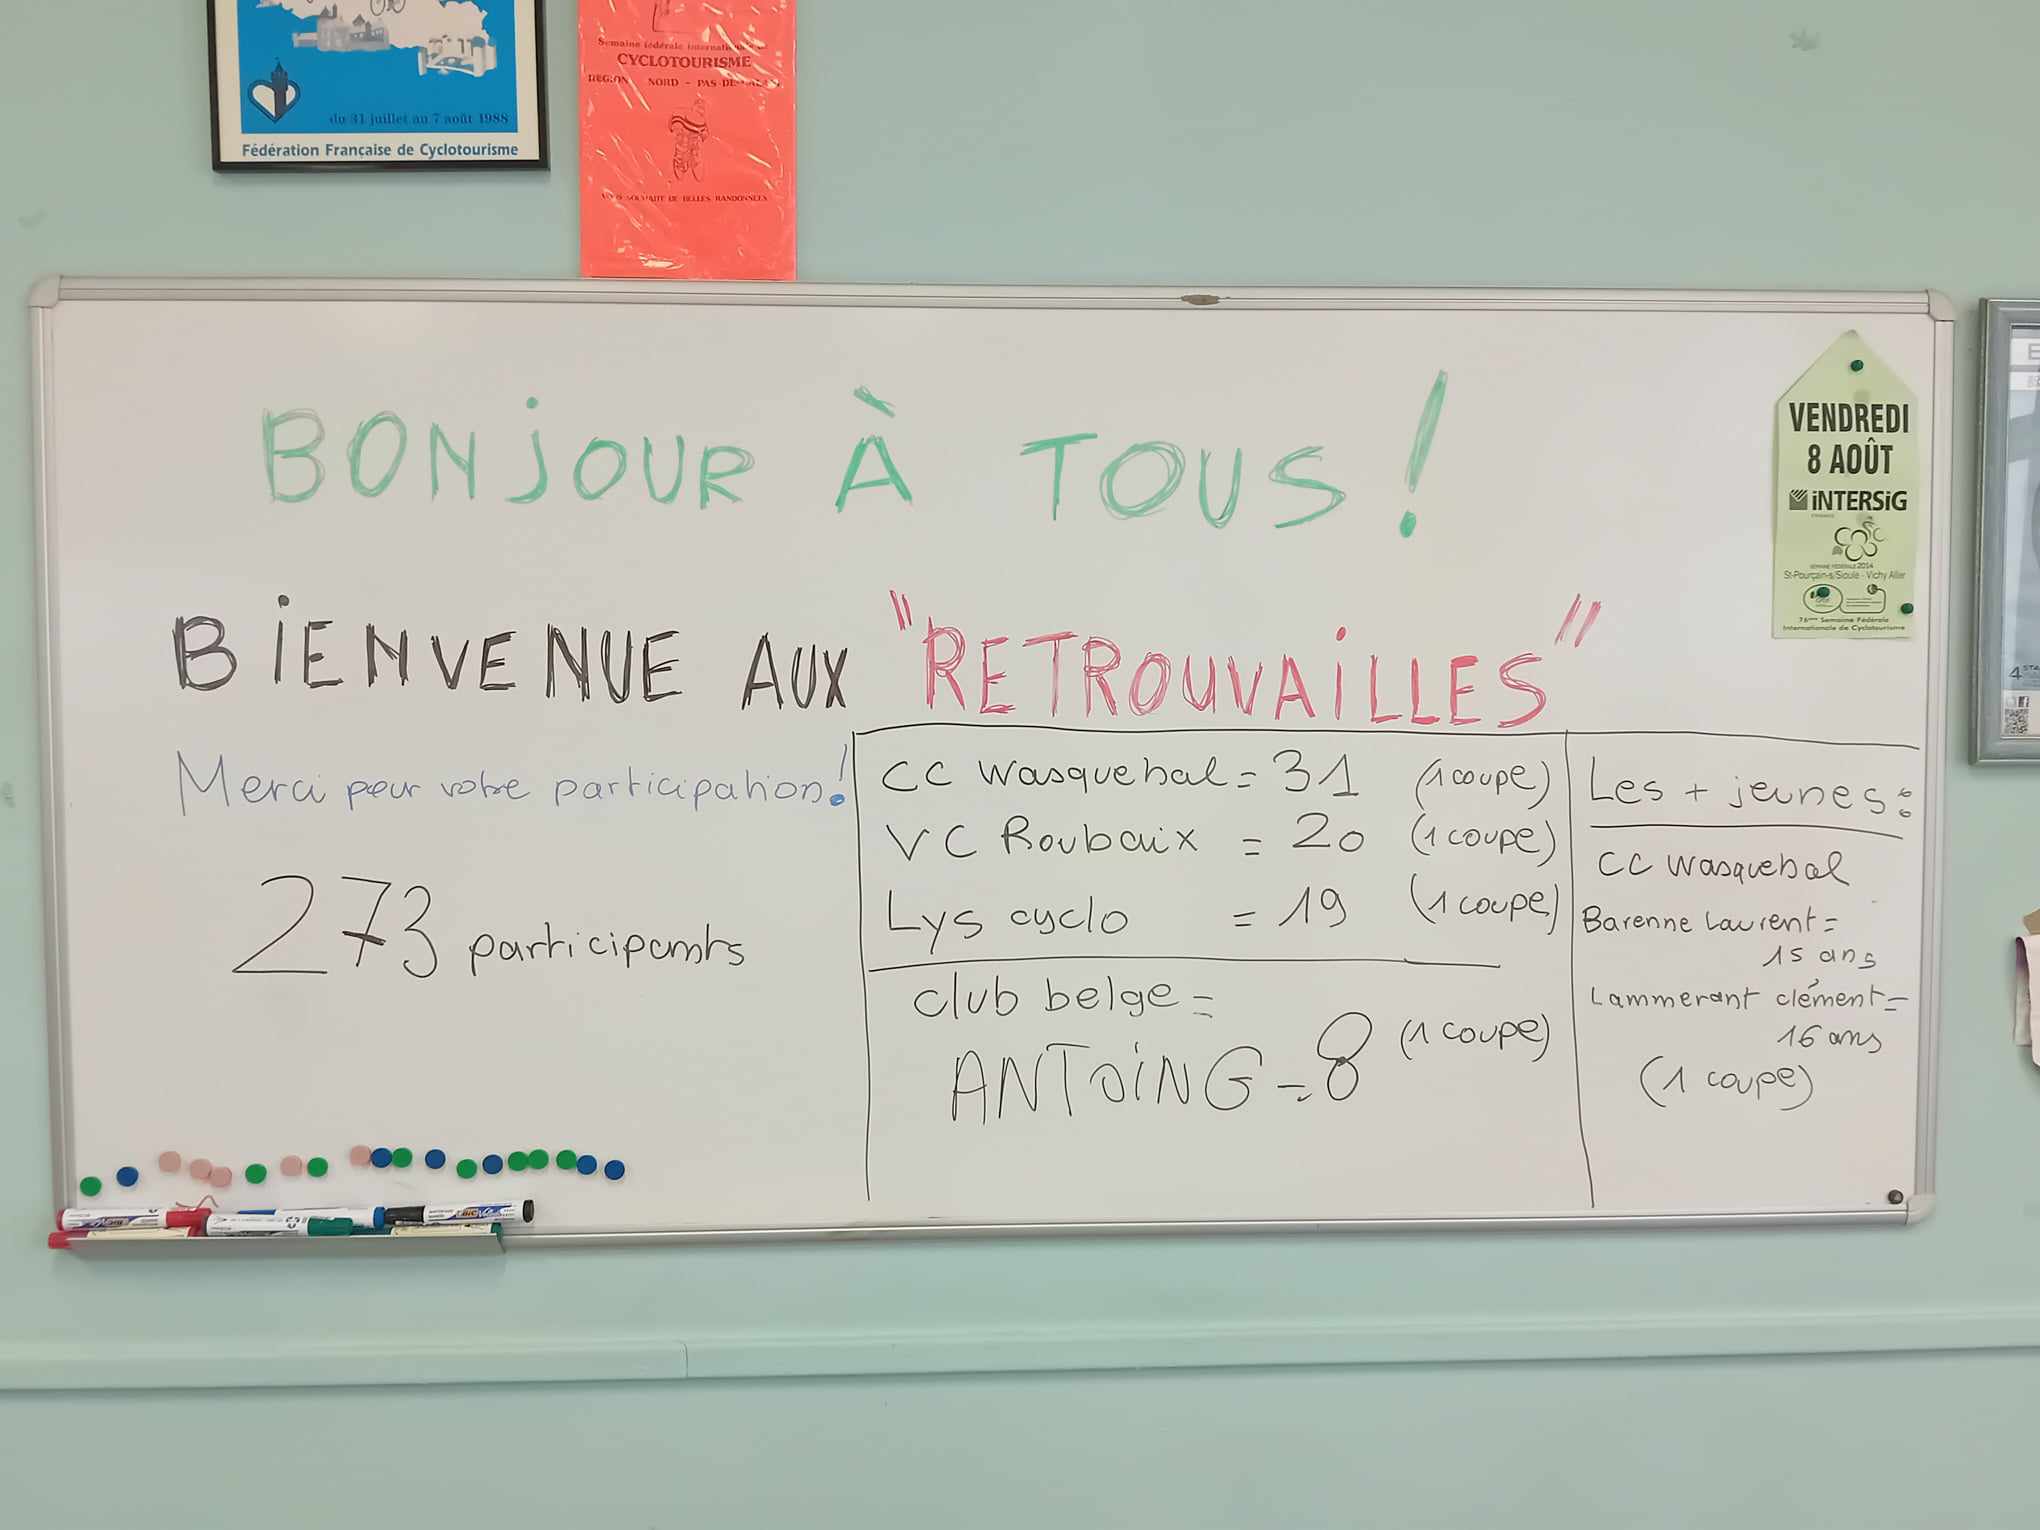 du 31 juillet au 7 août 1988
Fédération Française de Cyclotourisme
Semaine fédérale
CYCLOTOURISME
REGION NORD - PAS-DE-CALAIS
VOUS SOUHAITE DE BELLES RANDONNÉES
BONjOUR À TOUS !
BiENVENUE AUX "RETROUVAiLLES"
Merci pour votre participation !
273 participants
CC Wasquehal = 31 (1 coupe)
VC Roubaix = 20 (1 coupe)
Lys cyclo = 19 (1 coupe)
club belge =
ANTOiNG = 8 (1 coupe)
Les + jeunes :
CC Wasquehal
Barenne Laurent =
15 ans
Lammerant clément =
16 ans
(1 coupe)
VENDREDI
8 AOÛT
iNTERSiG
SEMAINE FÉDÉRALE 2014
St-Pourçain-s/Sioule - Vichy Allier
76ème Semaine Fédérale
Internationale de Cyclotourisme
BIC